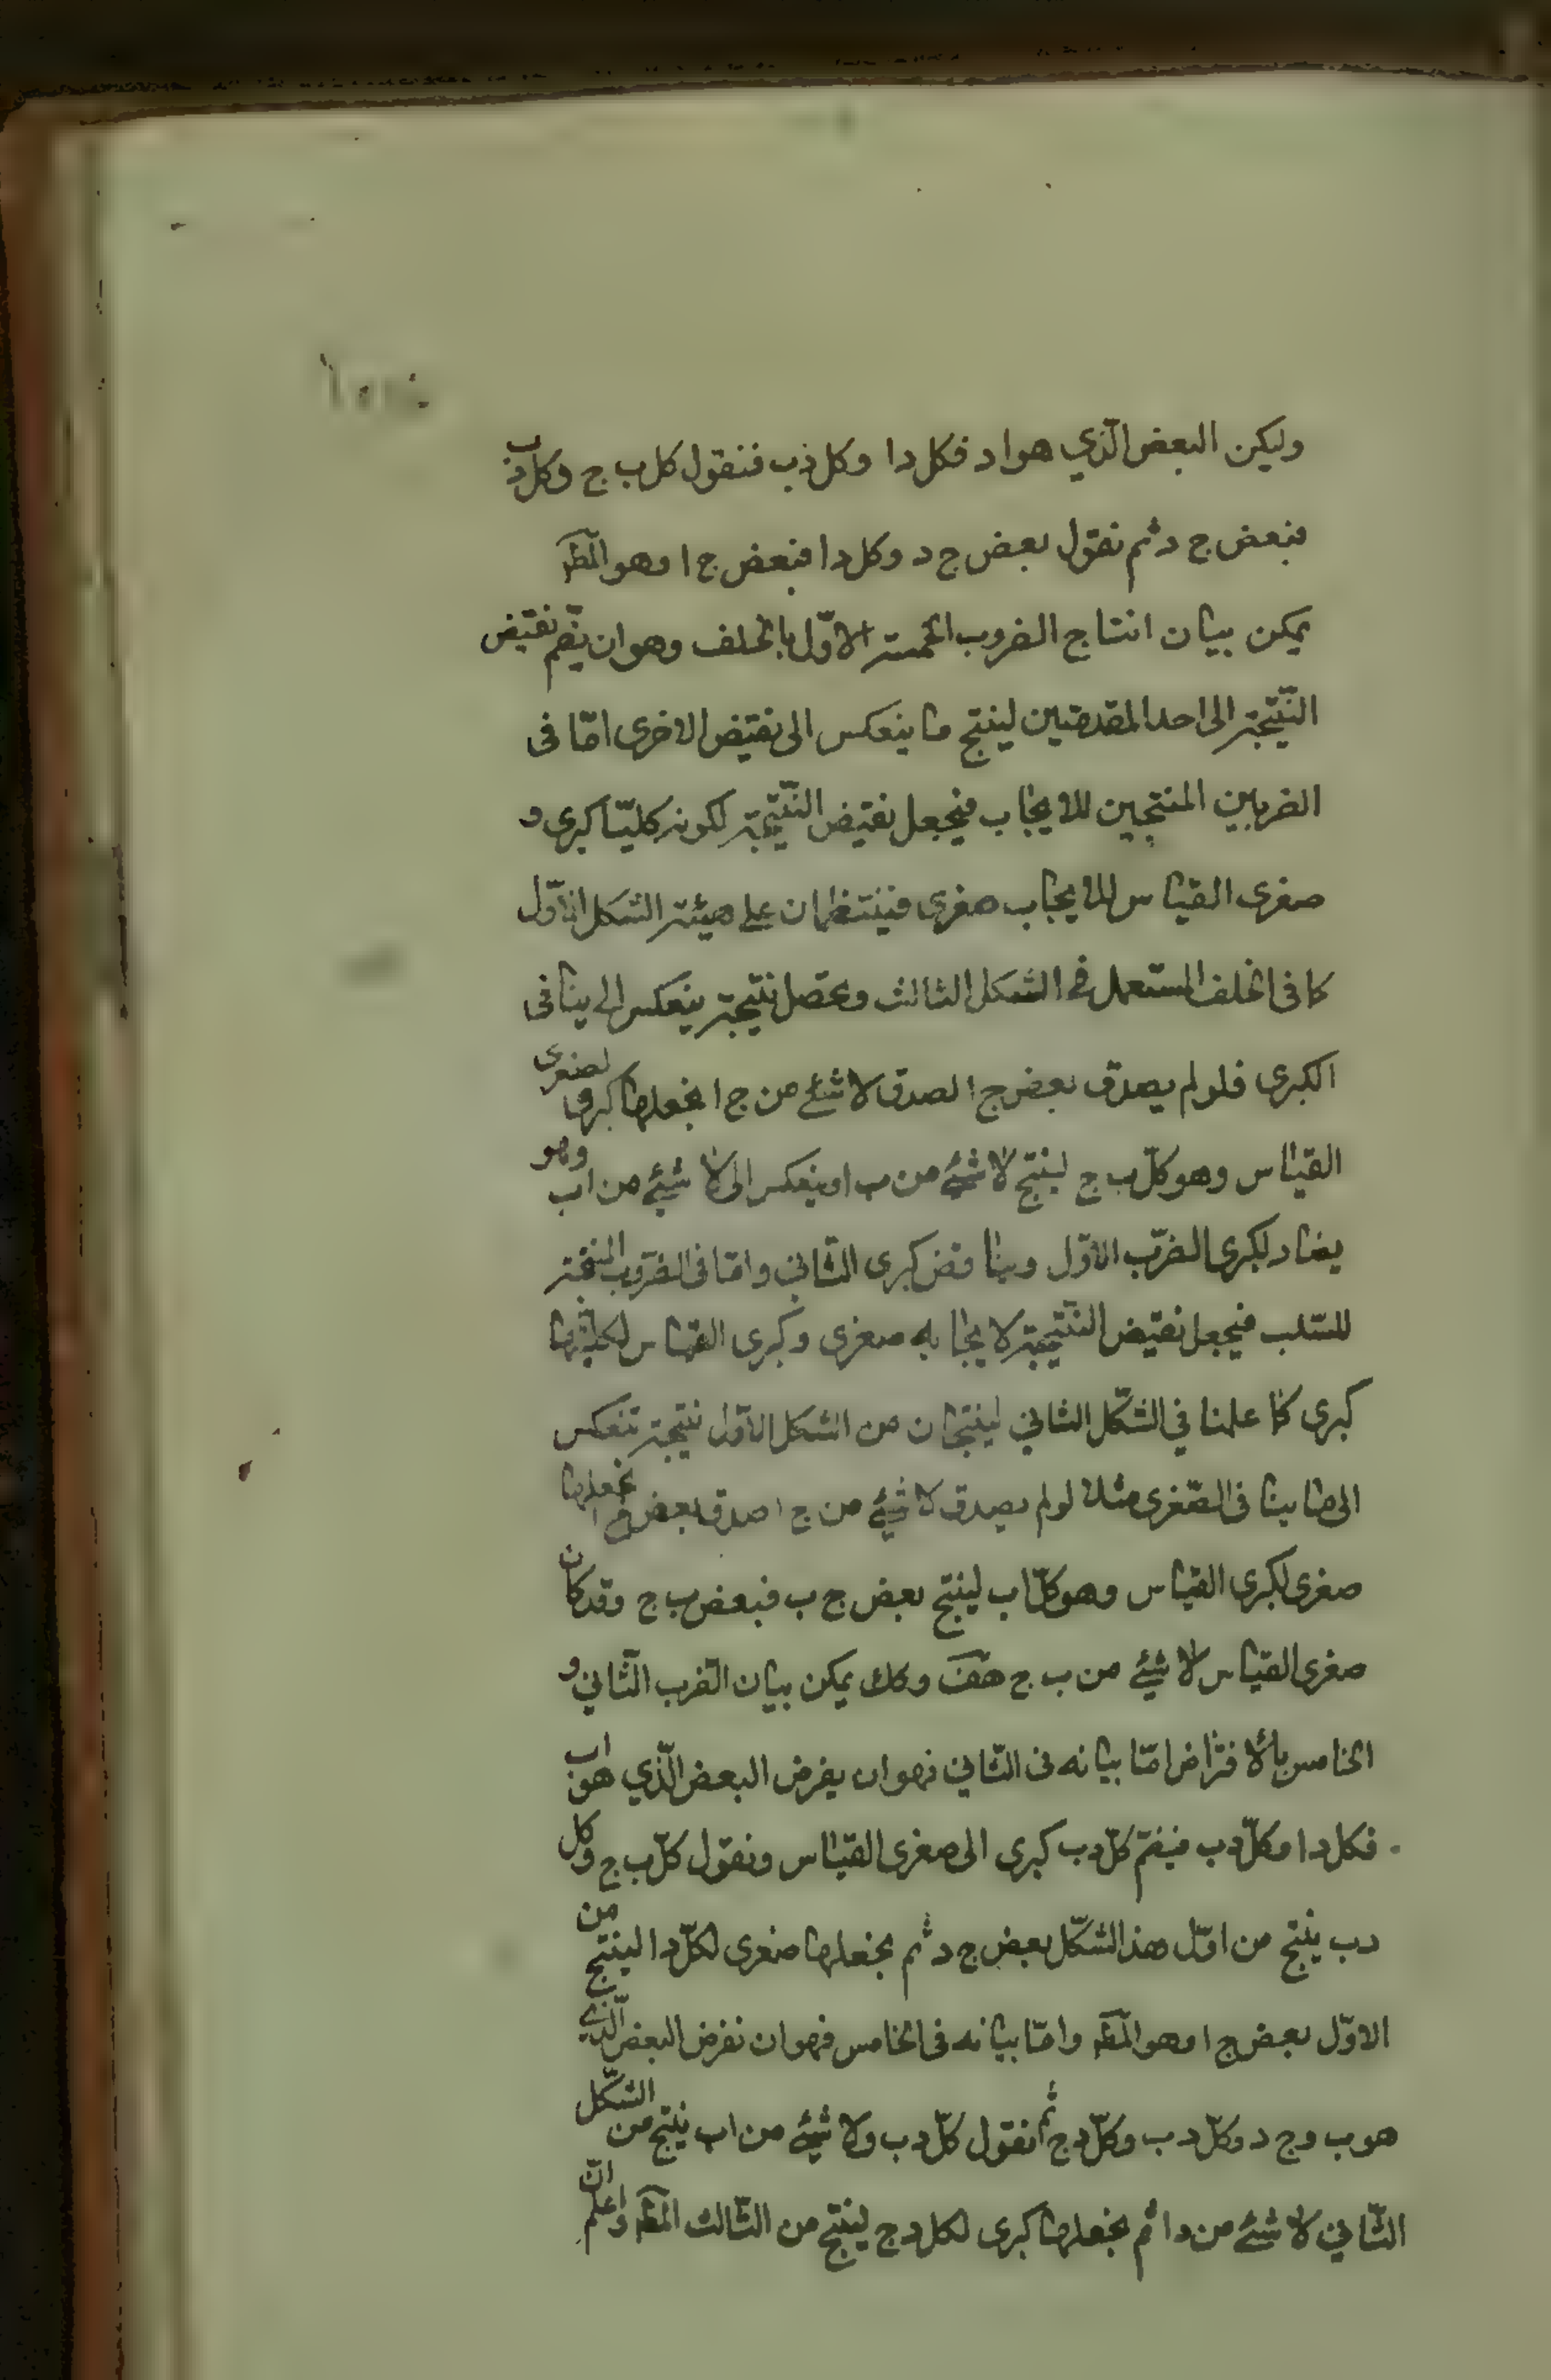 وليكن البعض الذي هو ا د فكل د ا وكل د ب فنقول كل ب ج وكل د ب
فبعض ج د ثم نقول بعض ج د وكل د ا فبعض ج ا وهو المط
يمكن بيان انتاج الضروب الخمسة الاول بالخلف وهو ان يضم نقيض
النتيجة الى احد المقدمتين لينتج ما ينعكس الى نقيض الاخرى امّا فى
الضربين المنتجين للايجاب فيجعل نقيض النتيجة لكونه كليّا كبرى و
صغرى القياس للايجاب صغرى فينتظمان على هيئة الشكل الاوّل
كما فى الخلف المستعمل فى الشكل الثالث و يحصل نتيجة ينعكس الى ينافى
الكبرى فلو لم يصدق بعض ج ا لصدق لا شئ من ج ا نجعلها كبرى لصغرى
القياس وهو كلّ ب ج لينتج لا شئ من ب ا وينعكس الى لا شئ من ا ب وهو
يضاد لكبرى الضرب الاوّل ويناقض كبرى الثانى وامّا فى الضروب المنتجة
للسّلب فيجعل نقيض النتيجة لايجابه صغرى وكبرى القياس لكليّتها
كبرى كما علمنا في الشكل الثاني لينتجان من الشكل الاوّل نتيجة تنعكس
الى ما ينافى الصّغرى مثلا لو لم يصدق لا شئ من ج ا صدق بعض ج ا نجعلها
صغرى لكبرى القياس وهو كلّ ا ب لينتج بعض ج ب فبعض ب ج وقد كان
صغرى القياس لا شئ من ب ج هف وكك يمكن بيان الضرب الثاني و
الخامس بالافتراض امّا بيانه فى الثاني فهو ان يفرض البعض الّذي هو ا ب
فكل د ا وكلّ د ب فيضمّ كلّ د ب كبرى الى صغرى القياس ونقول كلّ ب ج وكل
د ب ينتج من اوّل هذا الشكل بعض ج د ثم نجعلها صغرى لكلّ د ا لينتج من
الاوّل بعض ج ا وهو المط وامّا بيانه فى الخامس فهو ان نفرض البعض الّذي
هو ب و ج د وكلّ د ب وكلّ د ج ثم نقول كلّ د ب ولا شئ من ا ب ينتج من الشكل
الثّاني لا شئ من د ا ثم نجعلها كبرى لكل د ج لينتج من الثّالث المط واعلم انّ